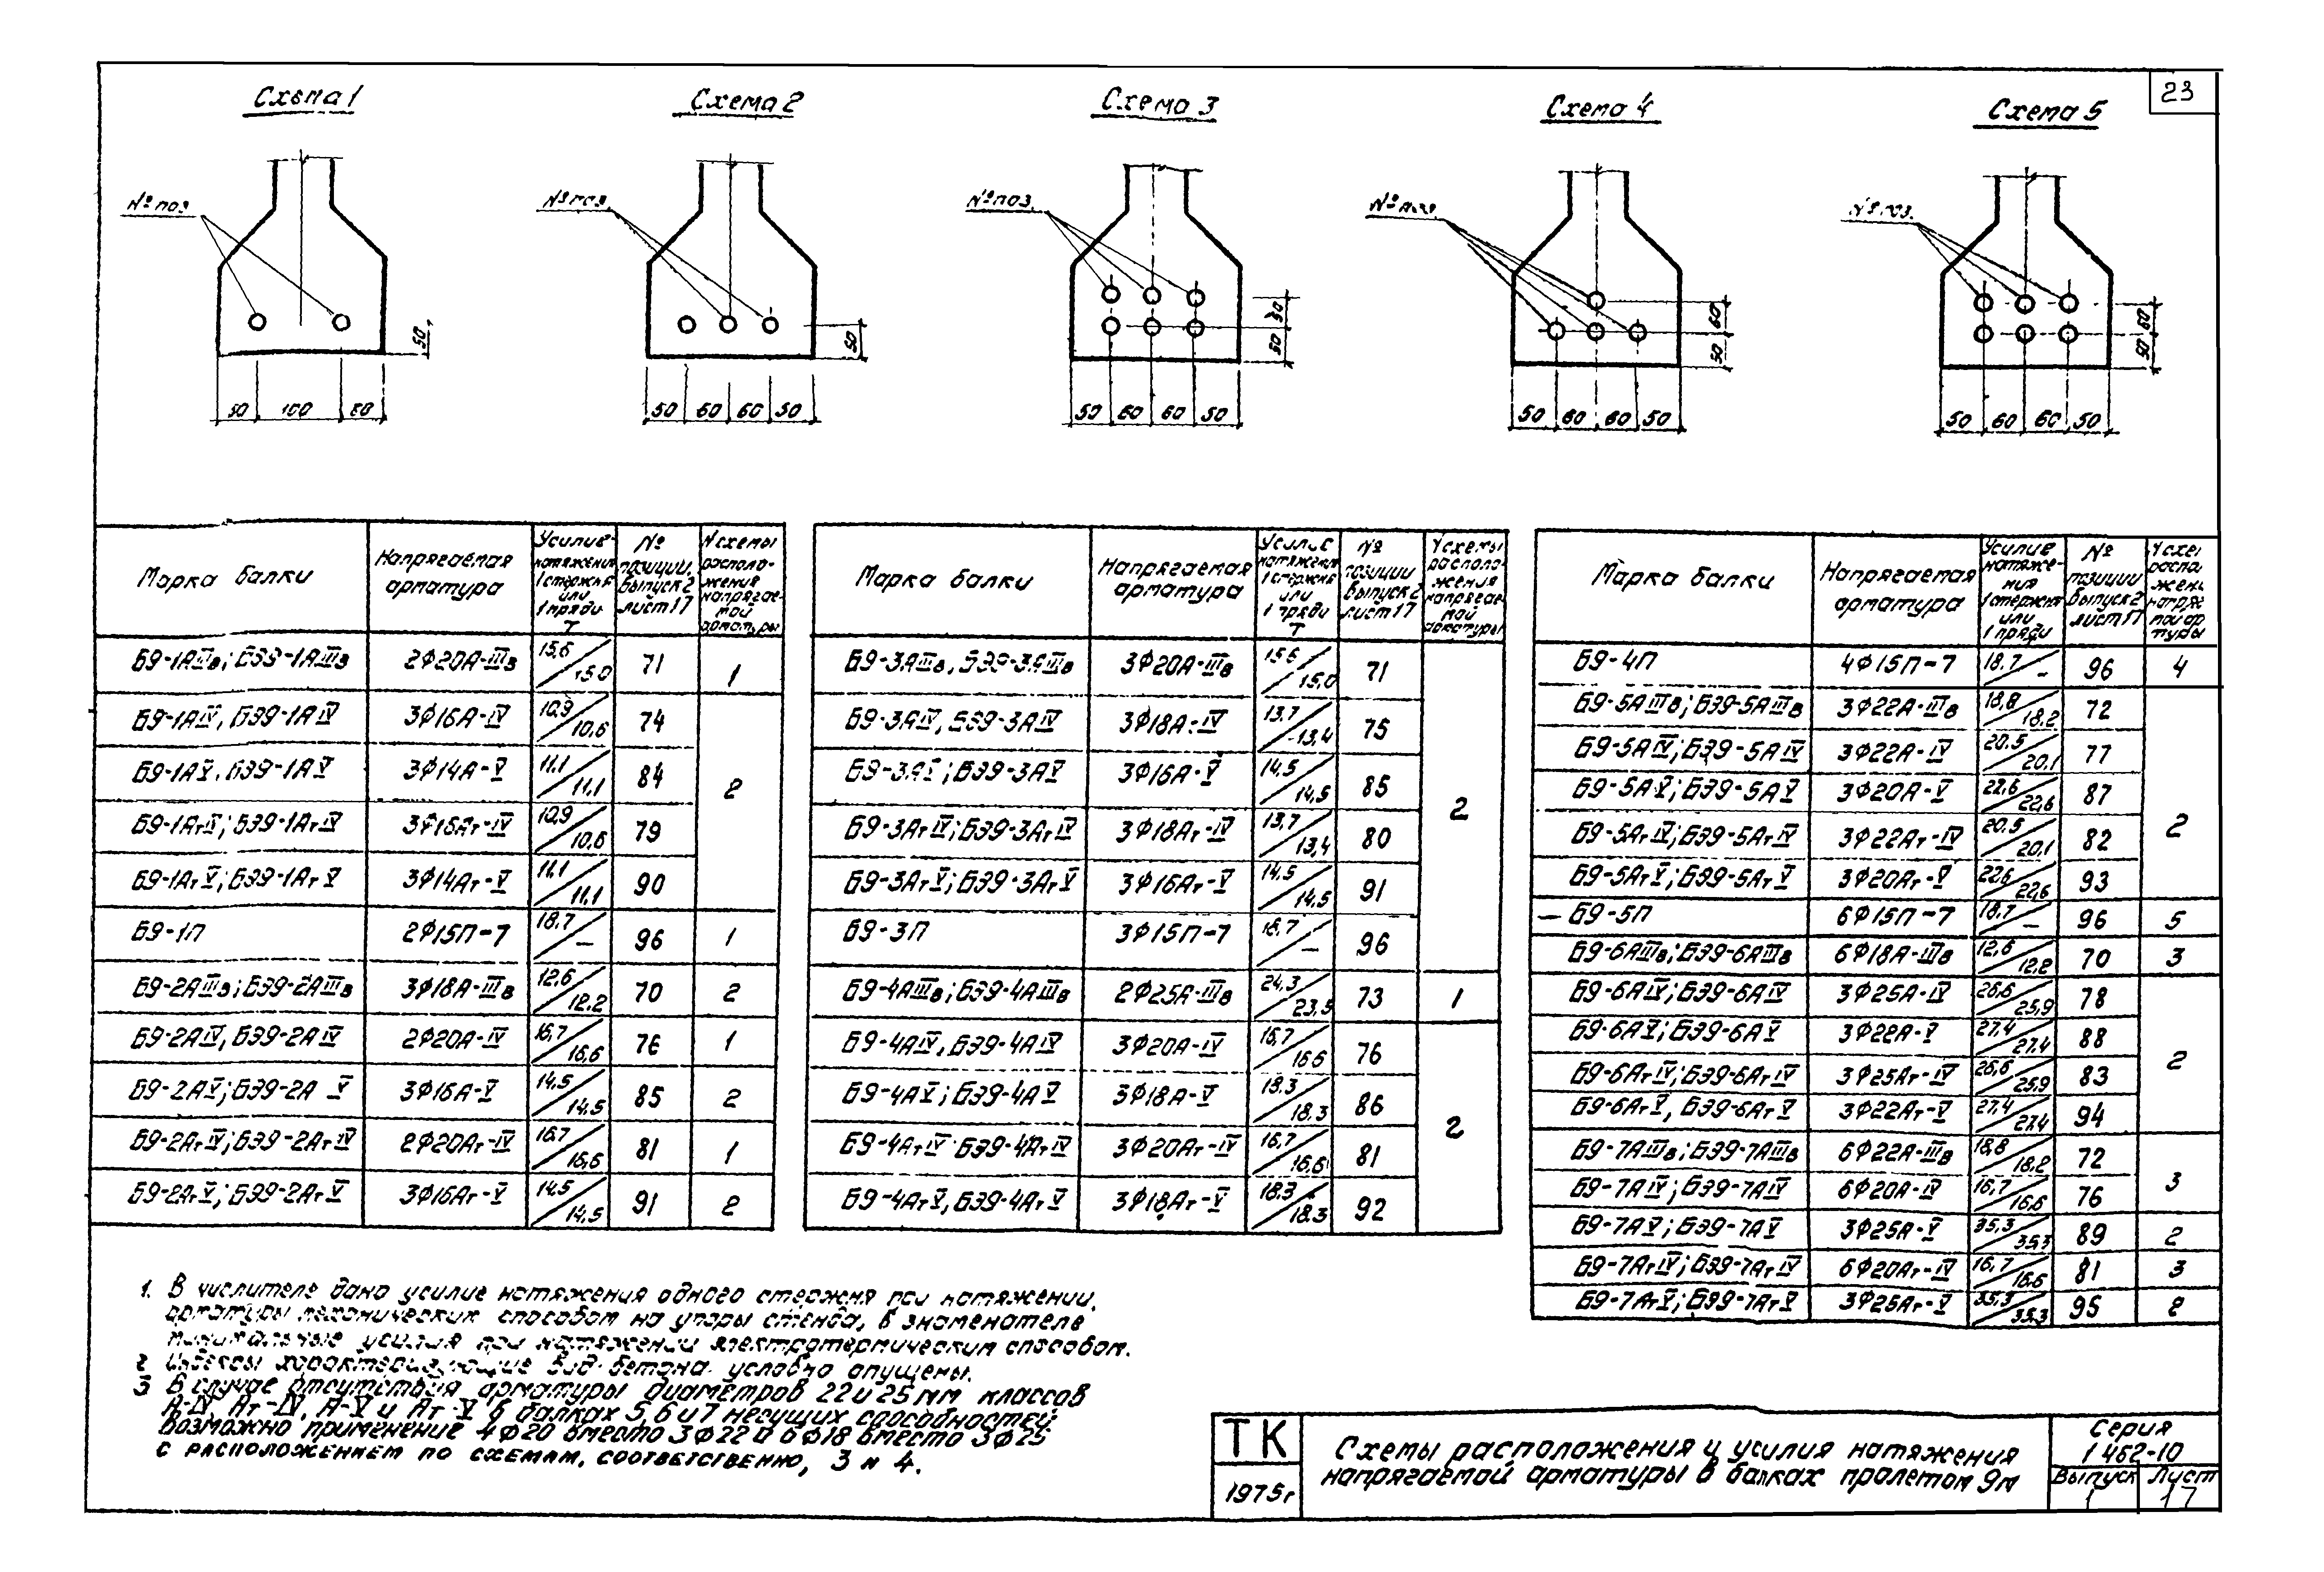 23
Схема 1
Схема 2
Схема 3
Схема 4
Схема 5
№ поз
№ поз.
№ поз.
№ поз.
№ поз.
50
50
50 50
60 50
60 50
50 100 50
50 60 60 50
50 60 60 50
50 60 60 50
50 60 60 50
Марка балки | Напрягаемая арматура | Усилие натяжения 1 стержня или 1 пряди Т | № позиции, выпуск 2 лист 17 | № схемы расположения напрягаемой арматуры
Б9-1АIIIв; БЭ9-1АIIIв | 2Φ20А-IIIв | 15,6 / 15,0 | 71 | 1
Б9-1АIV, БЭ9-1АIV | 3Φ16А-IV | 10,9 / 10,6 | 74 | 2
Б9-1АV, БЭ9-1АV | 3Φ14А-V | 11,1 / 11,1 | 84
Б9-1АтIV; БЭ9-1АтIV | 3Φ16Ат-IV | 10,9 / 10,6 | 79
Б9-1АтV; БЭ9-1АтV | 3Φ14Ат-V | 11,1 / 11,1 | 90
Б9-1П | 2Φ15П-7 | 18,7 / – | 96 | 1
Б9-2АIIIв; БЭ9-2АIIIв | 3Φ18А-IIIв | 12,6 / 12,2 | 70 | 2
Б9-2АIV, БЭ9-2АIV | 2Φ20А-IV | 16,7 / 16,6 | 76 | 1
Б9-2АV; БЭ9-2А V | 3Φ16А-V | 14,5 / 14,5 | 85 | 2
Б9-2АтIV; БЭ9-2АтIV | 2Φ20Ат-IV | 16,7 / 16,6 | 81 | 1
Б9-2АтV; БЭ9-2АтV | 3Φ16Ат-V | 14,5 / 14,5 | 91 | 2
Марка балки | Напрягаемая арматура | Усилие натяжения 1 стержня или 1 пряди Т | № позиции выпуск 2 лист 17 | № схемы расположения напрягаемой арматуры
Б9-3АIIIв, БЭ9-3АIIIв | 3Φ20А-IIIв | 15,6 / 15,0 | 71 | 2
Б9-3АIV, БЭ9-3АIV | 3Φ18А-IV | 13,7 / 13,4 | 75
Б9-3АV; БЭ9-3АV | 3Φ16А-V | 14,5 / 14,5 | 85
Б9-3АтIV; БЭ9-3АтIV | 3Φ18Ат-IV | 13,7 / 13,4 | 80
Б9-3АтV; БЭ9-3АтV | 3Φ16Ат-V | 14,5 / 14,5 | 91
Б9-3П | 3Φ15П-7 | 18,7 / – | 96
Б9-4АIIIв; БЭ9-4АIIIв | 2Φ25А-IIIв | 24,3 / 23,5 | 73 | 1
Б9-4АIV, БЭ9-4АIV | 3Φ20А-IV | 16,7 / 16,6 | 76 | 2
Б9-4АV; БЭ9-4АV | 3Φ18А-V | 18,3 / 18,3 | 86
Б9-4АтIV БЭ9-4АтIV | 3Φ20Ат-IV | 16,7 / 16,6 | 81
Б9-4АтV, БЭ9-4АтV | 3Φ18Ат-V | 18,3 / 18,3 | 92
Марка балки | Напрягаемая арматура | Усилие натяжения 1 стержня или 1 пряди | № позиции выпуск 2 лист 17
Б9-4П | 4Φ15П-7 | 18,7 / – | 96 | 4
Б9-5АIIIв; БЭ9-5АIIIв | 3Φ22А-IIIв | 18,8 / 18,2 | 72 | 2
Б9-5АIV; БЭ9-5АIV | 3Φ22А-IV | 20,5 / 20,1 | 77
Б9-5АV; БЭ9-5АV | 3Φ20А-V | 22,6 / 22,6 | 87
Б9-5АтIV; БЭ9-5АтIV | 3Φ22Ат-IV | 20,5 / 20,1 | 82
Б9-5АтV; БЭ9-5АтV | 3Φ20Ат-V | 22,6 / 22,6 | 93
– Б9-5П | 6Φ15П-7 | 18,7 / – | 96 | 5
Б9-6АIIIв; БЭ9-6АIIIв | 6Φ18А-IIIв | 12,6 / 12,2 | 70 | 3
Б9-6АIV; БЭ9-6АIV | 3Φ25А-IV | 26,6 / 25,9 | 78 | 2
Б9-6АV; БЭ9-6АV | 3Φ22А-V | 27,4 / 27,4 | 88
Б9-6АтIV; БЭ9-6АтIV | 3Φ25Ат-IV | 26,6 / 25,9 | 83
Б9-6АтV, БЭ9-6АтV | 3Φ22Ат-V | 27,4 / 27,4 | 94
Б9-7АIIIв; БЭ9-7АIIIв | 6Φ22А-IIIв | 18,8 / 18,2 | 72 | 3
Б9-7АIV; БЭ9-7АIV | 6Φ20А-IV | 16,7 / 16,6 | 76
Б9-7АV; БЭ9-7АV | 3Φ25А-V | 35,3 / 35,3 | 89 | 2
Б9-7АтIV; БЭ9-7АтIV | 6Φ20Ат-IV | 16,7 / 16,6 | 81 | 3
Б9-7АтV; БЭ9-7АтV | 3Φ25Ат-V | 35,3 / 35,3 | 95 | 2
1. В числителе дано усилие натяжения одного стержня при натяжении
арматуры механическим способом на упоры стенда, в знаменателе
усилия при натяжении электротермическим способом.
2 Индексы характеризующие вид бетона условно опущены.
3 В случае отсутствия арматуры диаметров 22 и 25 мм классов
А-IV, Ат-IV, А-V и Ат-V в балках 5, 6 и 7 несущих способностей
возможно применение 4Φ20 вместо 3Φ22 и 6Φ18 вместо 3Φ25
с расположением по схемам, соответственно, 3 и 4.
ТК
1975г
Схемы расположения и усилия натяжения
напрягаемой арматуры в балках пролетом 9м
Серия
1 462-10
Выпуск Лист
1 17